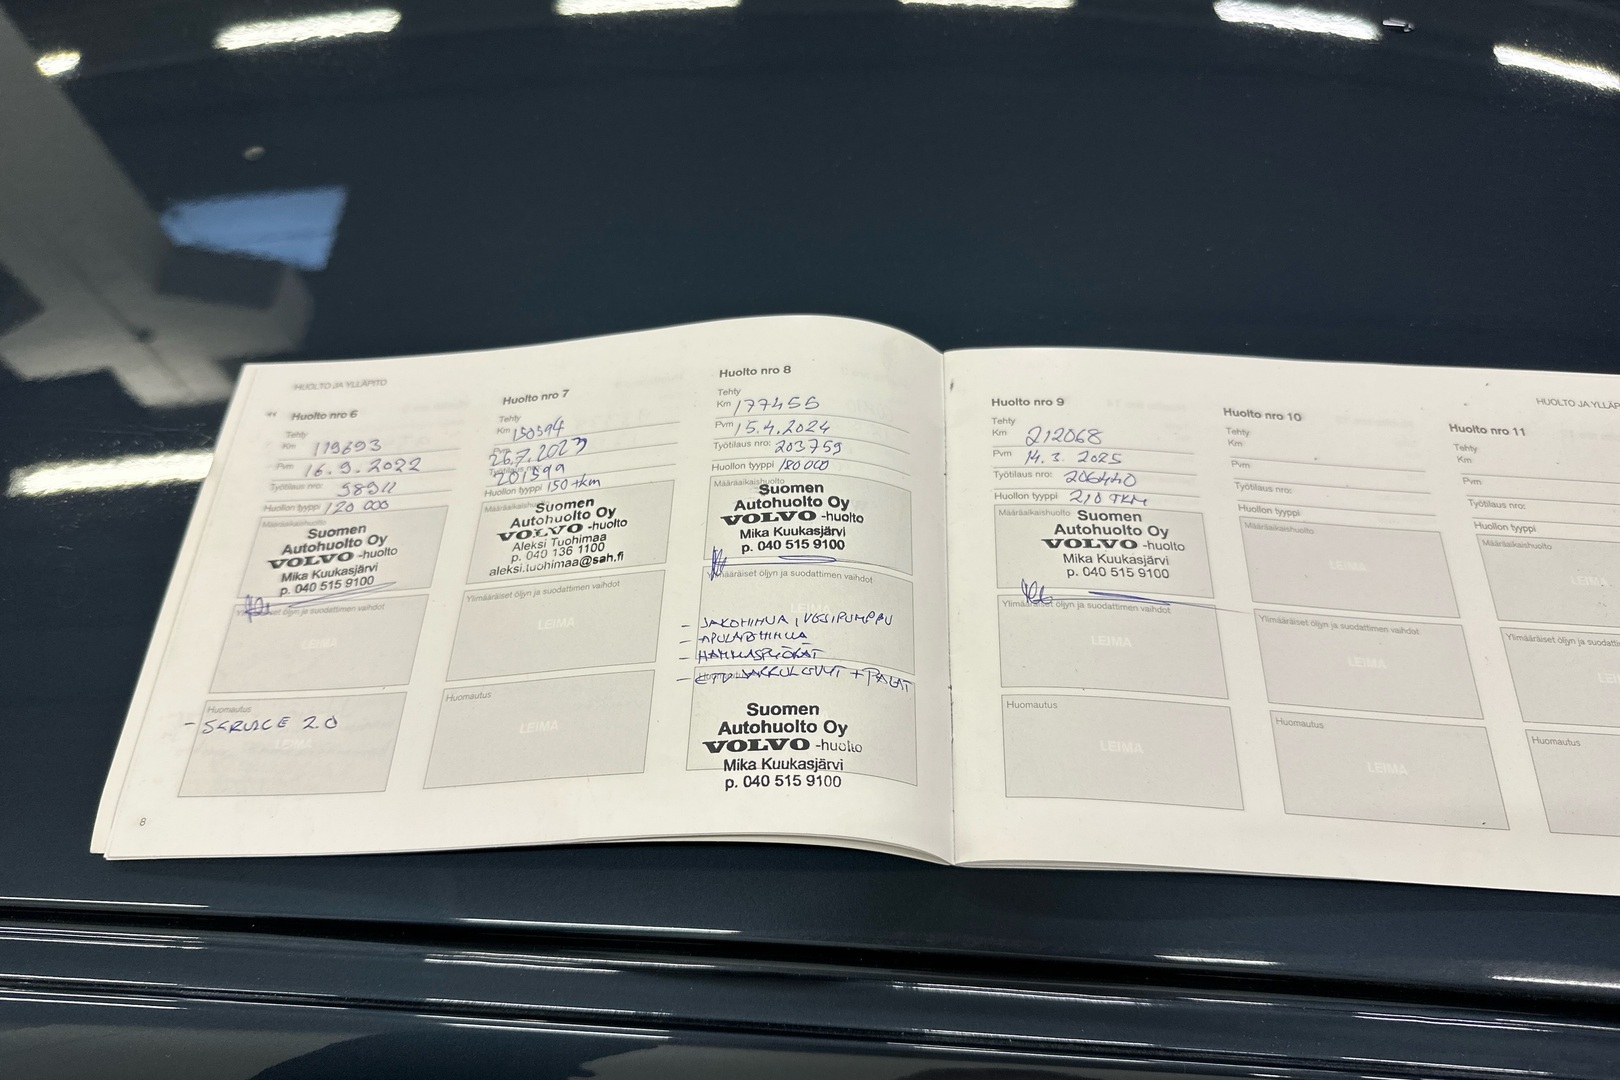 HUOLTO JA YLLÄPITO
Huolto nro 6
Tehty
Km 119693
Pvm 16.9.2022
Työtilaus nro: 58911
Huollon tyyppi 120 000
Määräaikaishuolto
Suomen
Autohuolto Oy
VOLVO -huolto
Mika Kuukasjärvi
p. 040 515 9100
öljyn ja suodattimen vaihdot
LEIMA
Huomautus
- SERVICE 2.0
LEIMA
8
Huolto nro 7
Tehty
Km 150594
Pvm 26.7.2023
201599
Huollon tyyppi 150 tkm
Suomen
Autohuolto Oy
VOLVO -huolto
Aleksi Tuohimaa
p. 040 136 1100
aleksi.tuohimaa@sah.fi
Ylimääräiset öljyn ja suodattimen vaihdot
LEIMA
Huomautus
LEIMA
Huolto nro 8
Tehty
Km 177455
Pvm 15.4.2024
Työtilaus nro: 203759
Huollon tyyppi 180 000
Määräaikaishuolto
Suomen
Autohuolto Oy
VOLVO -huolto
Mika Kuukasjärvi
p. 040 515 9100
Ylimääräiset öljyn ja suodattimen vaihdot
LEIMA
- JAKOHIHNA, VESIPUMPPU
- APULAITEHIHNA
- HAMMASPYÖRÄT
- ETU JARRULEVYT + PALAT
Suomen
Autohuolto Oy
VOLVO -huolto
Mika Kuukasjärvi
p. 040 515 9100
HUOLTO JA YLLÄP
Huolto nro 9
Tehty
Km 212068
Pvm 14.3.2025
Työtilaus nro: 206440
Huollon tyyppi 210 TKM
Määräaikaishuolto
Suomen
Autohuolto Oy
VOLVO -huolto
Mika Kuukasjärvi
p. 040 515 9100
Ylimääräiset öljyn ja suodattimen vaihdot
LEIMA
Huomautus
LEIMA
Huolto nro 10
Tehty
Km
Pvm
Työtilaus nro:
Huollon tyyppi
Määräaikaishuolto
LEIMA
Ylimääräiset öljyn ja suodattimen vaihdot
LEIMA
Huomautus
LEIMA
Huolto nro 11
Tehty
Km
Pvm
Työtilaus nro:
Huollon tyyppi
Määräaikaishuolto
LEIMA
Ylimääräiset öljyn ja suodattim
LEI
Huomautus